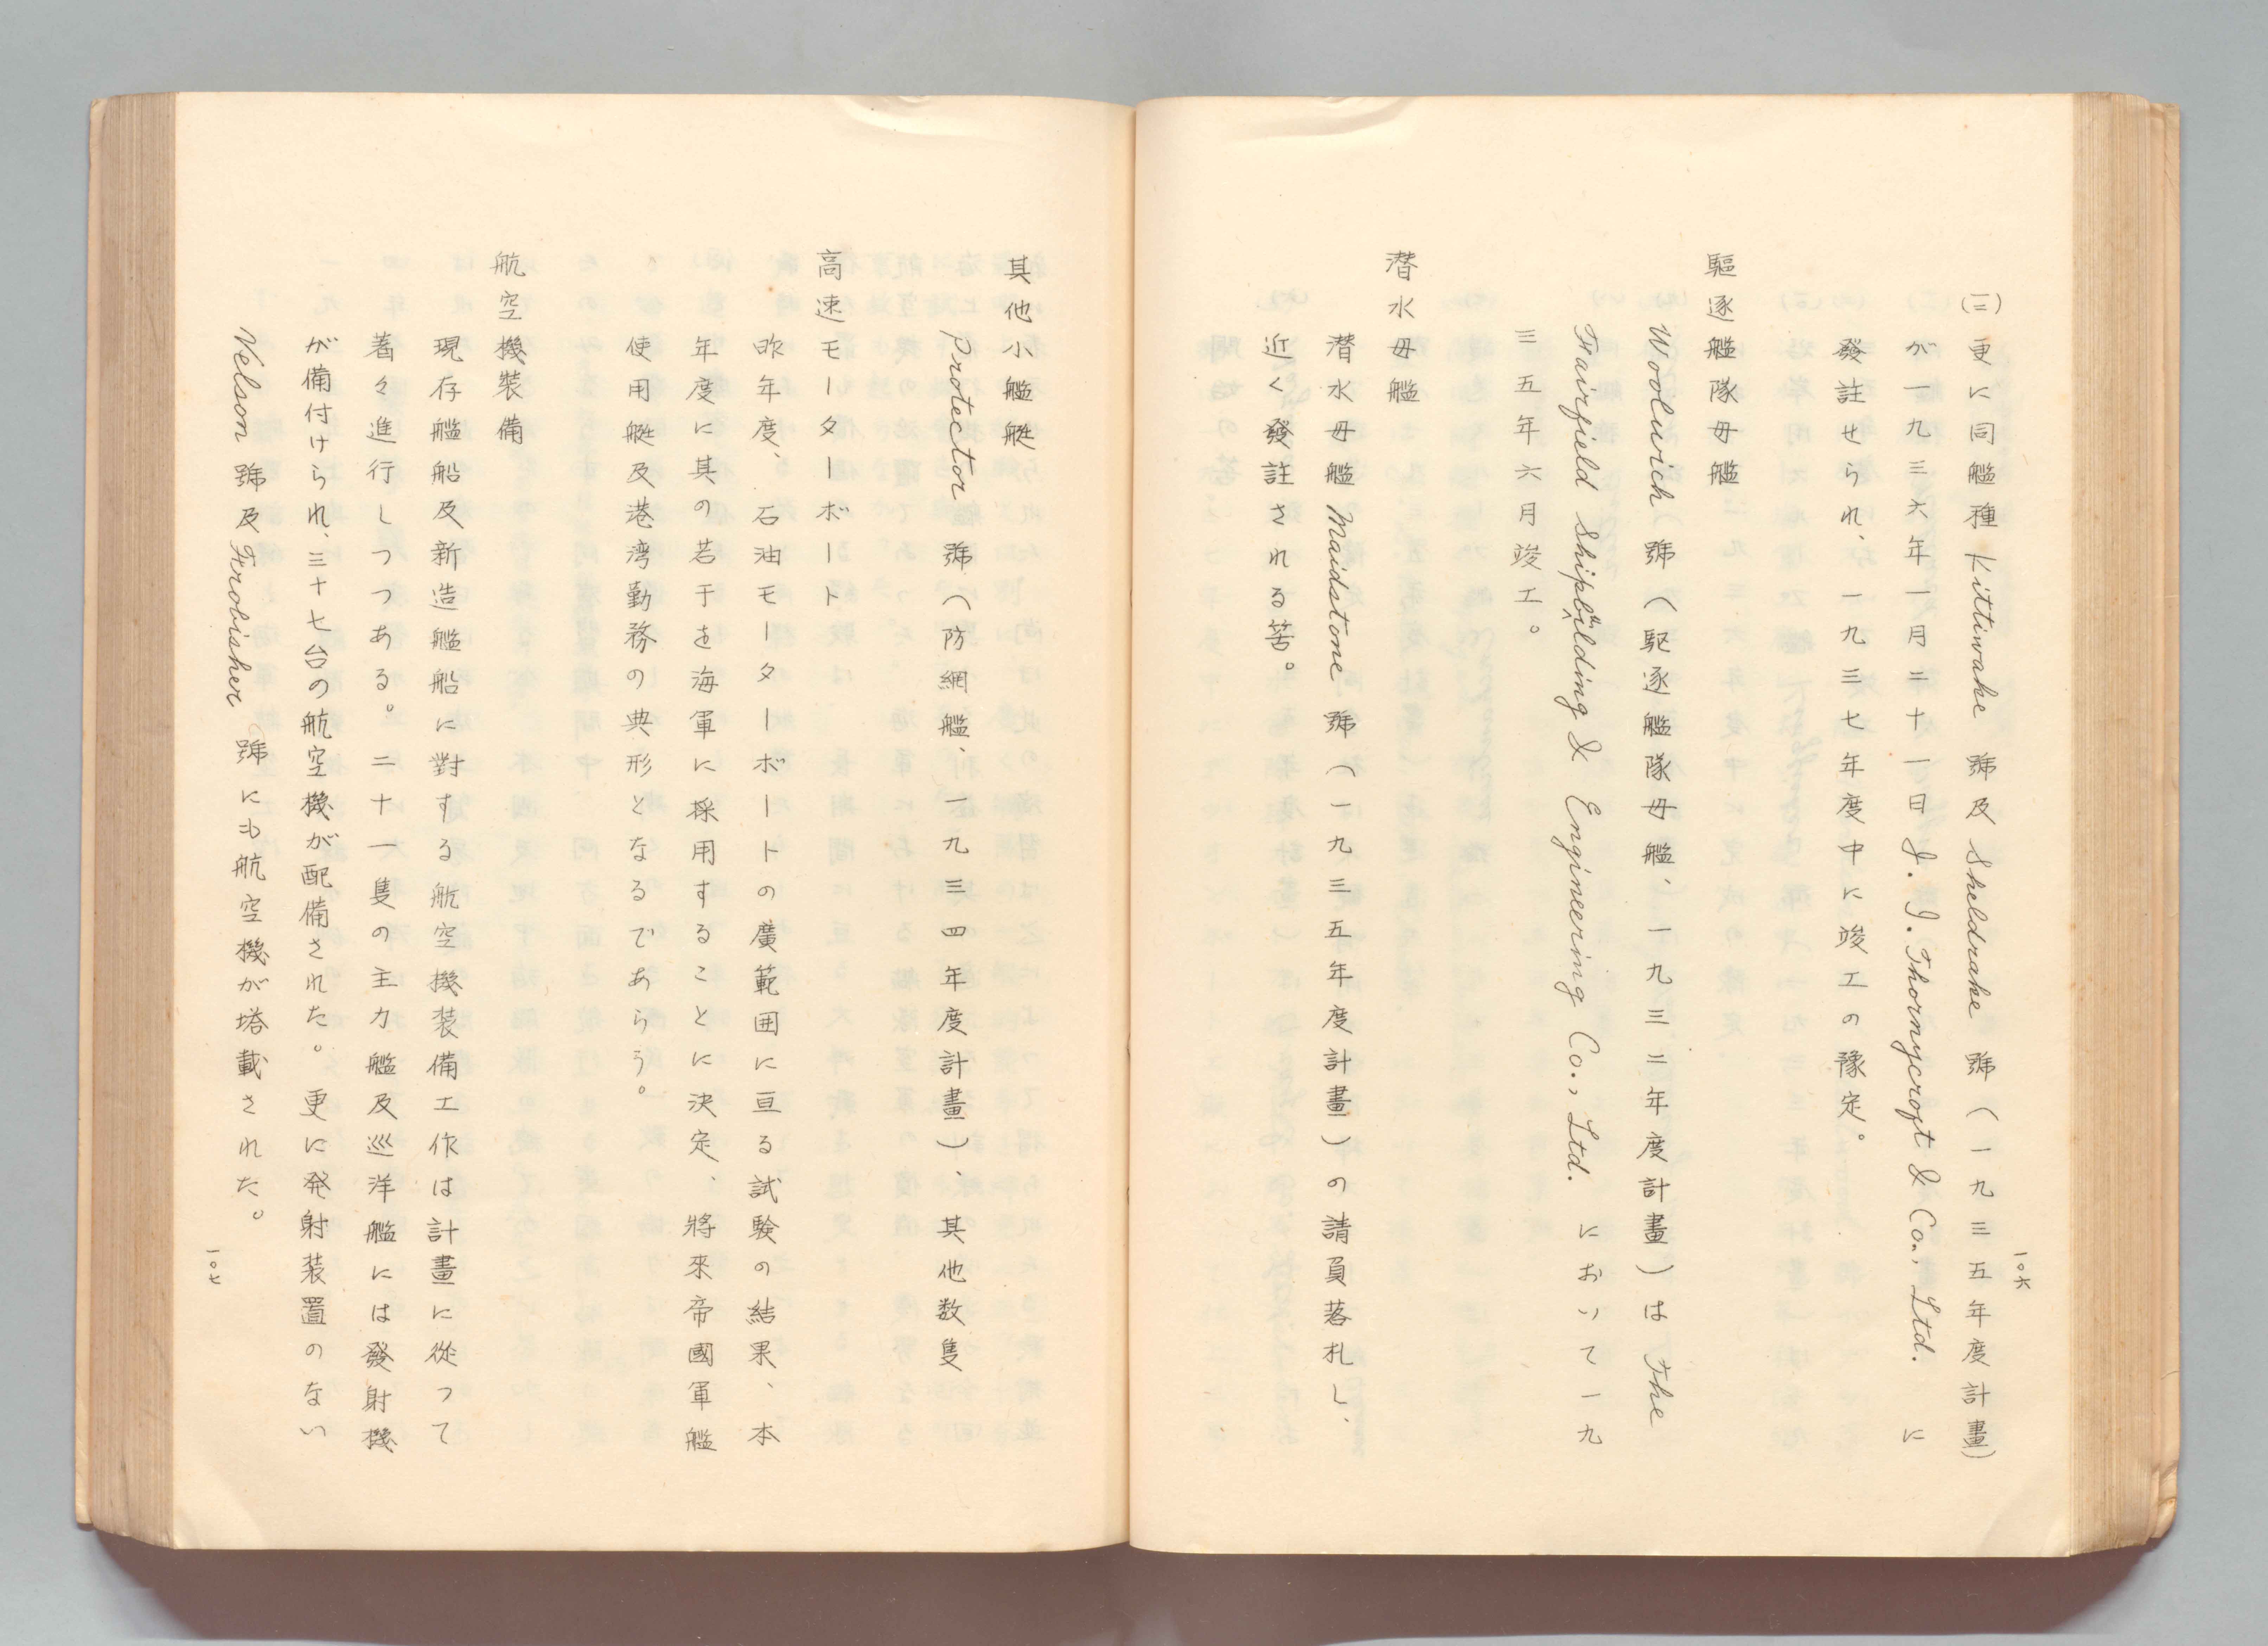 (二) 更に同艦種 Kittiwake 號及 Sheldrake 號(一九三五年度計畫)
が一九三六年一月二十一日 J. I. Thornycroft & Co., Ltd. に
發註せられ、一九三七年度中に竣工の豫定。
驅逐艦隊母艦
Woolwich 號(駆逐艦隊母艦、一九三二年度計畫)は The
Fairfield Shipbuilding & Engineering Co., Ltd. において一九
三五年六月竣工。
潜水母艦
潜水母艦 Maidstone 號(一九三五年度計畫)の請負落札し、
近く發註される筈。
一〇六
其他小艦艇
Protector 號(防網艦、一九三四年度計畫)、其他数隻
高速モーターボート
昨年度、石油モーターボートの廣範囲に亘る試験の結果、本
年度に其の若干を海軍に採用することに決定、將來帝國軍艦
使用艇及港湾勤務の典形となるであらう。
航空機裝備
現存艦船及新造艦船に對する航空機装備工作は計畫に從つて
著々進行しつつある。二十一隻の主力艦及巡洋艦には發射機
が備付けられ、三十七台の航空機が配備された。更に発射装置のない
Nelson 號及 Frobisher 號にも航空機が塔載された。
一〇七